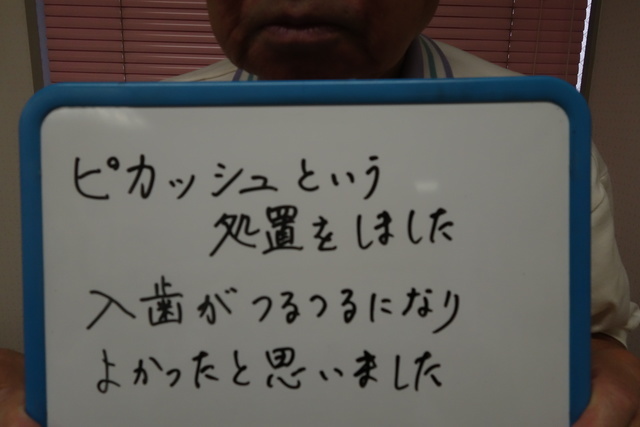 ピカッシュという
処置をしました
入歯がつるつるになり
よかったと思いました